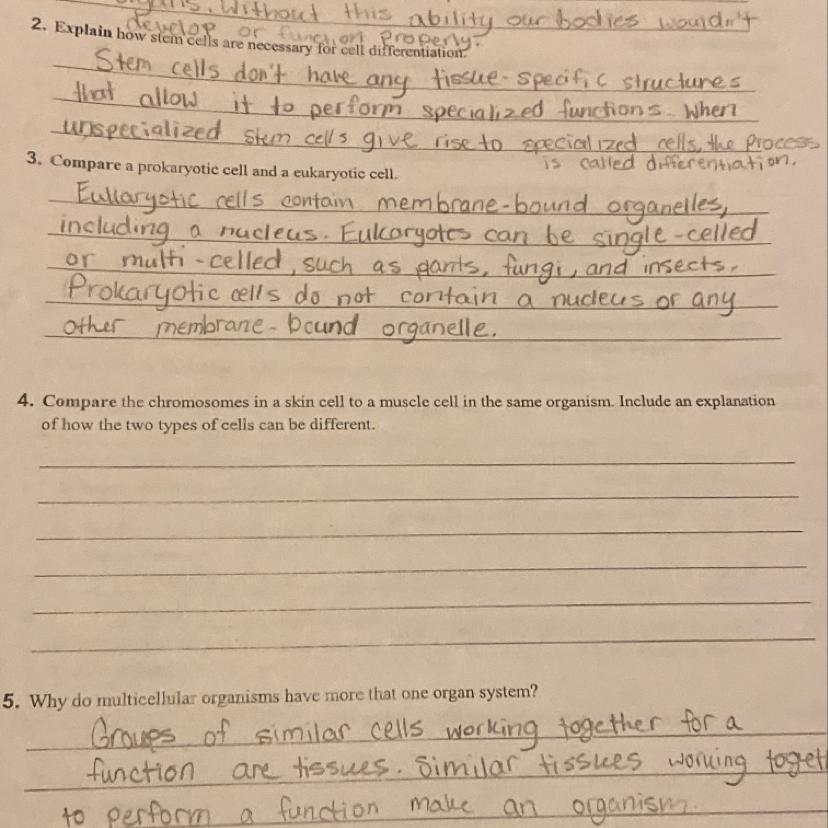 organs. Without this ability our bodies wouldn't
develop or function properly.
2. Explain how stem cells are necessary for cell differentiation.
Stem cells don't have any tissue-specific structures
that allow it to perform specialized functions. When
unspecialized stem cells give rise to specialized cells, the process
is called differentiation.
3. Compare a prokaryotic cell and a eukaryotic cell.
Eukaryotic cells contain membrane-bound organelles,
including a nucleus. Eukaryotes can be single-celled
or multi-celled, such as plants, fungi, and insects.
Prokaryotic cells do not contain a nucleus or any
other membrane-bound organelle.
4. Compare the chromosomes in a skin cell to a muscle cell in the same organism. Include an explanation
of how the two types of cells can be different.
5. Why do multicellular organisms have more that one organ system?
Groups of similar cells working together for a
function are tissues. Similar tissues working toget
to perform a function make an organism.